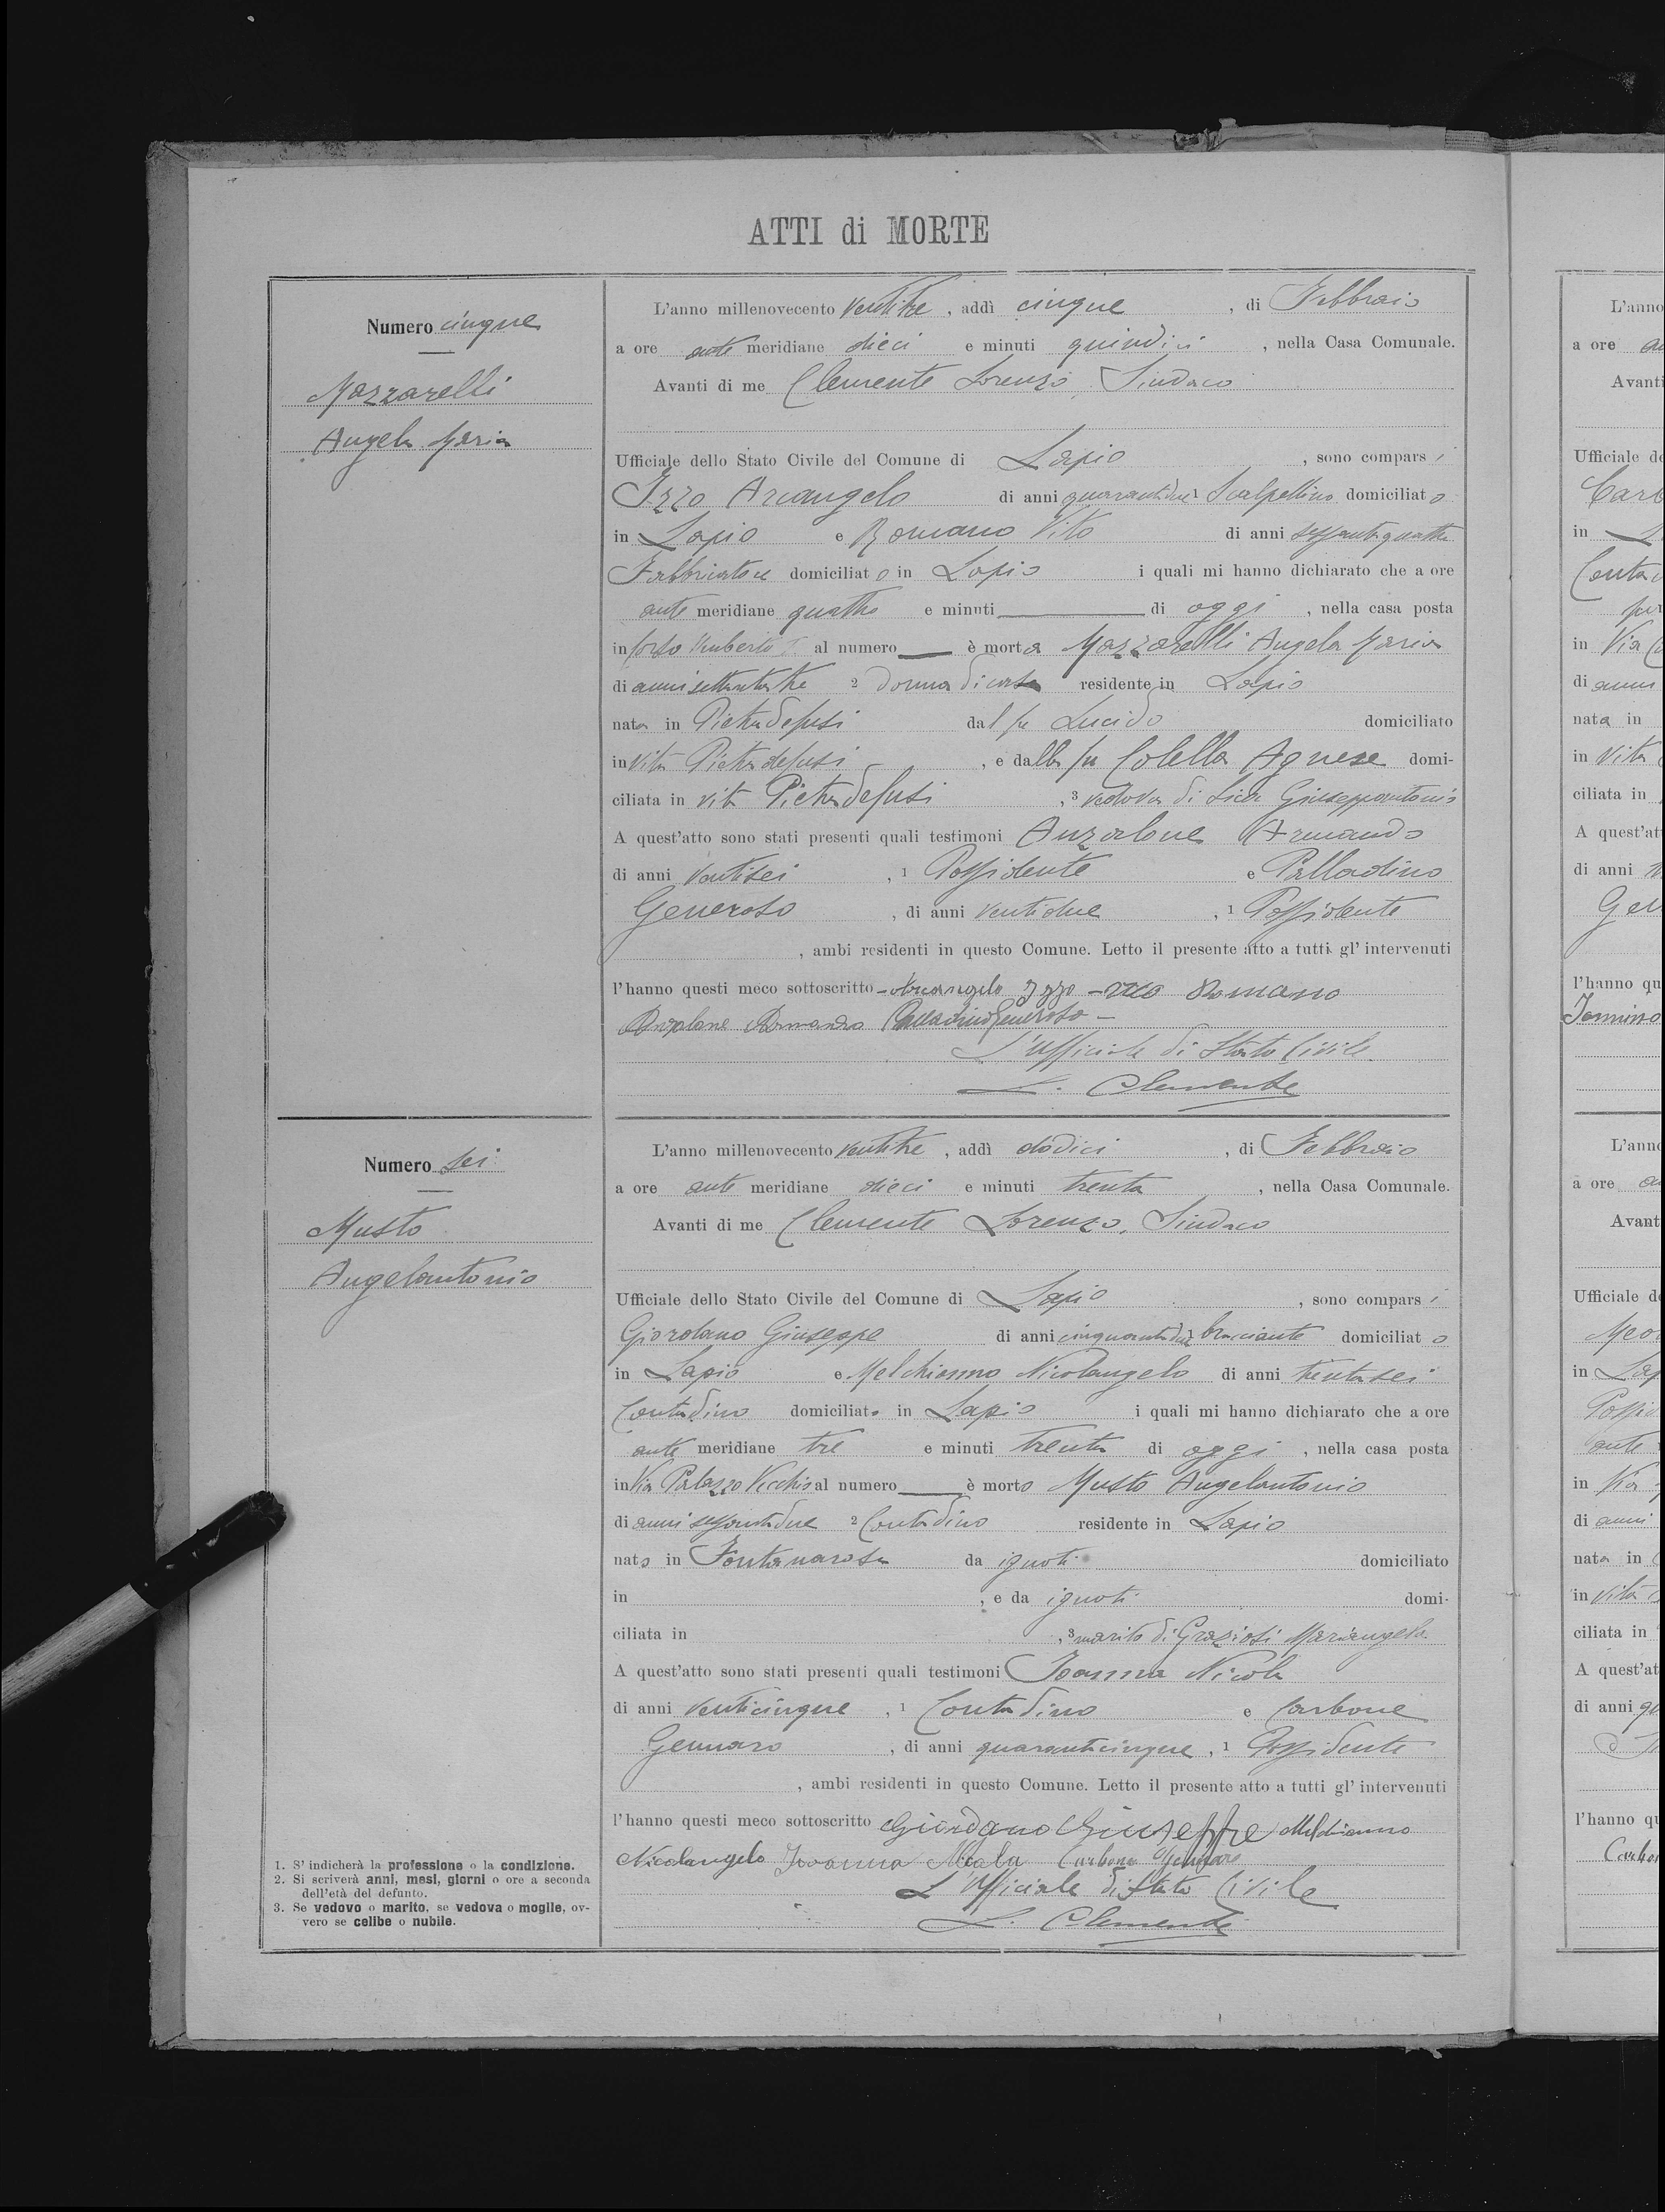 ATTI di MORTE
Numero cinque
Mazzarelli
Angela Maria
L'anno millenovecento ventitre, addì cinque, di Febbraio
a ore ante meridiane dieci e minuti quindici, nella Casa Comunale.
Avanti di me Clemente Lorenzo Sindaco
Ufficiale dello Stato Civile del Comune di Lapio, sono comparsi
Izzo Arcangelo di anni quarantadue 1 Scalpellino domiciliato
in Lapio e Romano Vito di anni sessantaquattro
Fabbricatore domiciliato in Lapio i quali mi hanno dichiarato che a ore
ante meridiane quattro e minuti — di oggi, nella casa posta
in Corso Umberto I al numero — è morta Mazzarelli Angela Maria
di anni settantatre 2 donna di casa residente in Lapio
nata in Pietradefusi dal fu Lucido domiciliato
in vita Pietradefusi, e dalla fu Colella Agnese domi-
ciliata in vita Pietradefusi, 3 vedova di Giuseppantonio
A quest'atto sono stati presenti quali testimoni Anzalone Armando
di anni ventisei, 1 Possidente e Palladino
Generoso, di anni ventidue, 1 Possidente
, ambi residenti in questo Comune. Letto il presente atto a tutti gl'intervenuti
l'hanno questi meco sottoscritto - Arcangelo Izzo - Vito Romano
Anzalone Armando Palladino Generoso -
L'Ufficiale di Stato Civile
L. Clemente
Numero sei
Musto
Angelantonio
L'anno millenovecento ventitre, addì dodici, di Febbraio
a ore ante meridiane dieci e minuti trenta, nella Casa Comunale.
Avanti di me Clemente Lorenzo, Sindaco
Ufficiale dello Stato Civile del Comune di Lapio, sono comparsi
Giordano Giuseppe di anni cinquantadue 1 bracciante domiciliato
in Lapio e Melchionno Nicolangelo di anni trentasei
Contadino domiciliato in Lapio i quali mi hanno dichiarato che a ore
ante meridiane tre e minuti trenta di oggi, nella casa posta
in Via Palazzo Vecchio al numero — è morto Musto Angelantonio
di anni sessantadue 2 Contadino residente in Lapio
nato in Fontanarosa da ignoti domiciliato
in, e da ignoti domi-
ciliata in, 3 marito di Graziosi Mariangela
A quest'atto sono stati presenti quali testimoni Ioanna Nicola
di anni venticinque, 1 Contadino e Carbone
Gennaro, di anni quarantacinque, 1 Possidente
, ambi residenti in questo Comune. Letto il presente atto a tutti gl'intervenuti
l'hanno questi meco sottoscritto Giordano Giuseppe Melchionno
Nicolangelo Ioanna Nicola Carbone Gennaro
L'Ufficiale di Stato Civile
L. Clemente
1. S'indicherà la professione o la condizione.
2. Si scriverà anni, mesi, giorni o ore a seconda
dell'età del defunto.
3. Se vedovo o marito, se vedova o moglie, ov-
vero se celibe o nubile.
L'anno
a ore
Avanti
Ufficiale de
in
in Via
di anni
nata in
in vita
ciliata in
A quest'at
di anni
l'hanno qu
L'anno
a ore
Avant
Ufficiale de
in Lap
in Via
di anni
nata in
in vita
ciliata in
A quest'at
di anni
l'hanno qu